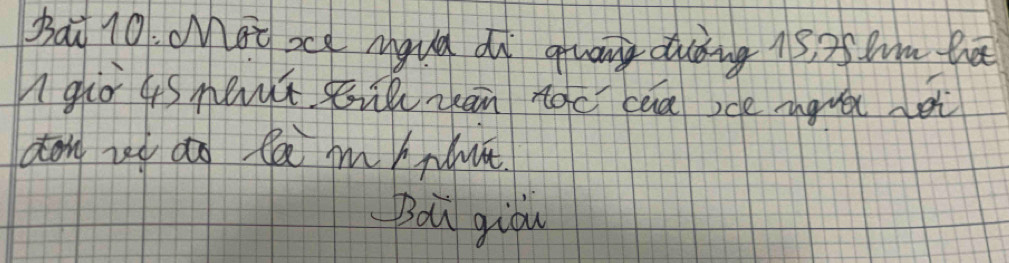 Bài 10: Một xe ngựa đi quãng đường 15,75 km hết
1 giờ 45 phút. Tính vận tốc của xe ngựa với
đơn vị đo là m / phút.
Bài giải